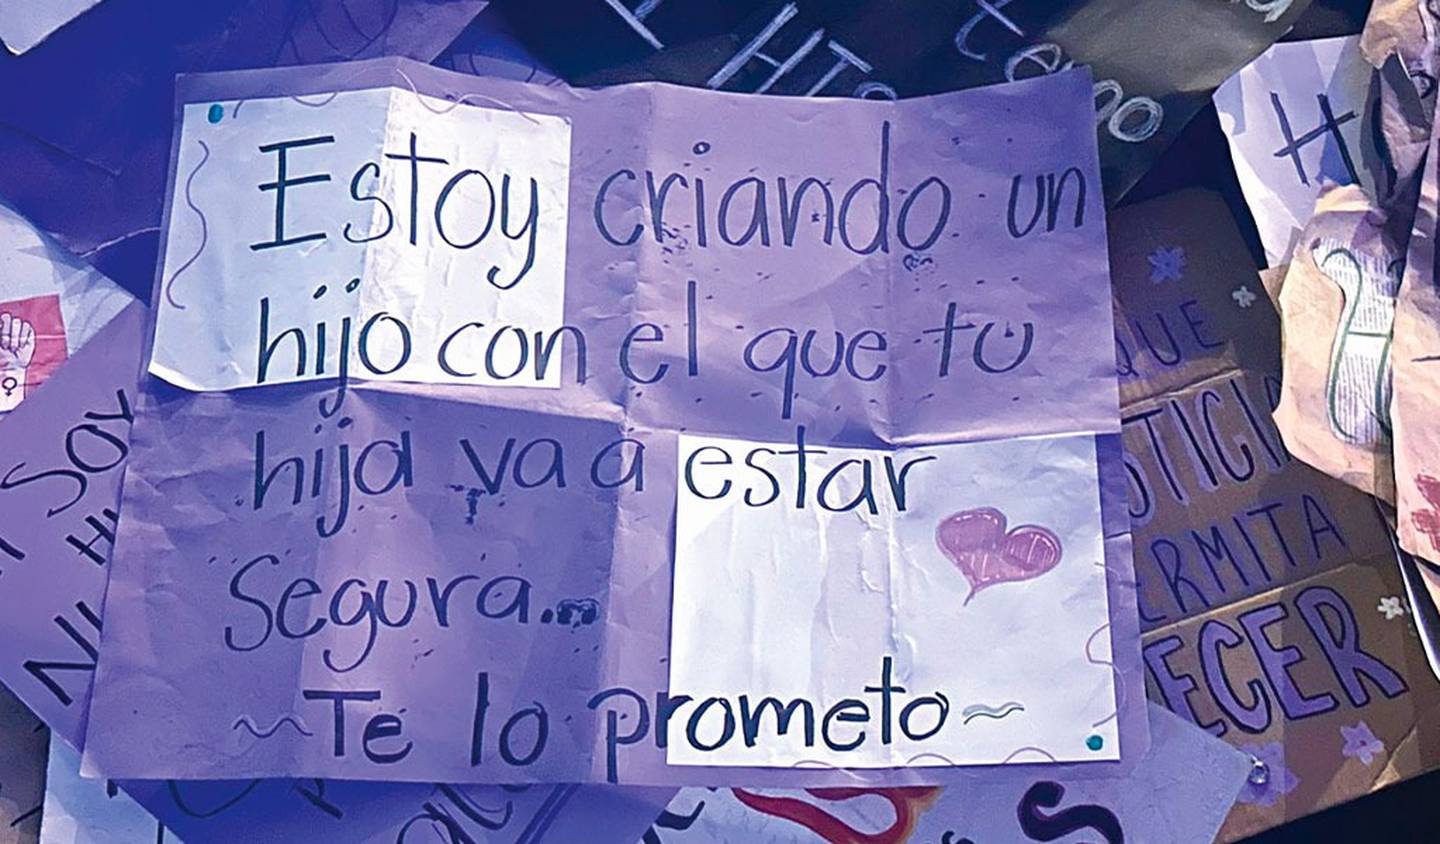 Estoy criando un
hijo con el que tu
hija va a estar
segura...
~ Te lo prometo ~
SOY
QUE
ERMITA
ECER